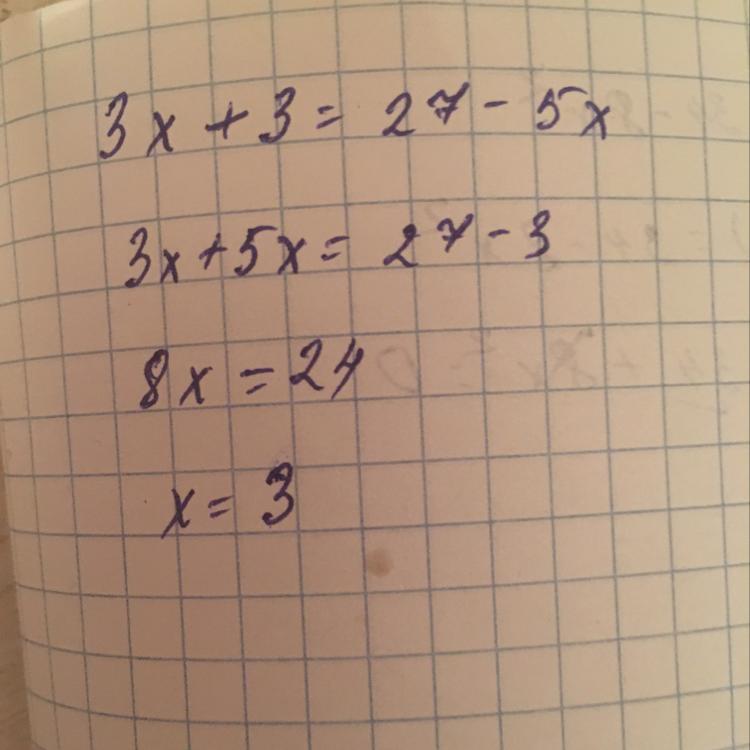 3x + 3 = 27 - 5x
3x + 5x = 27 - 3
8x = 24
x = 3